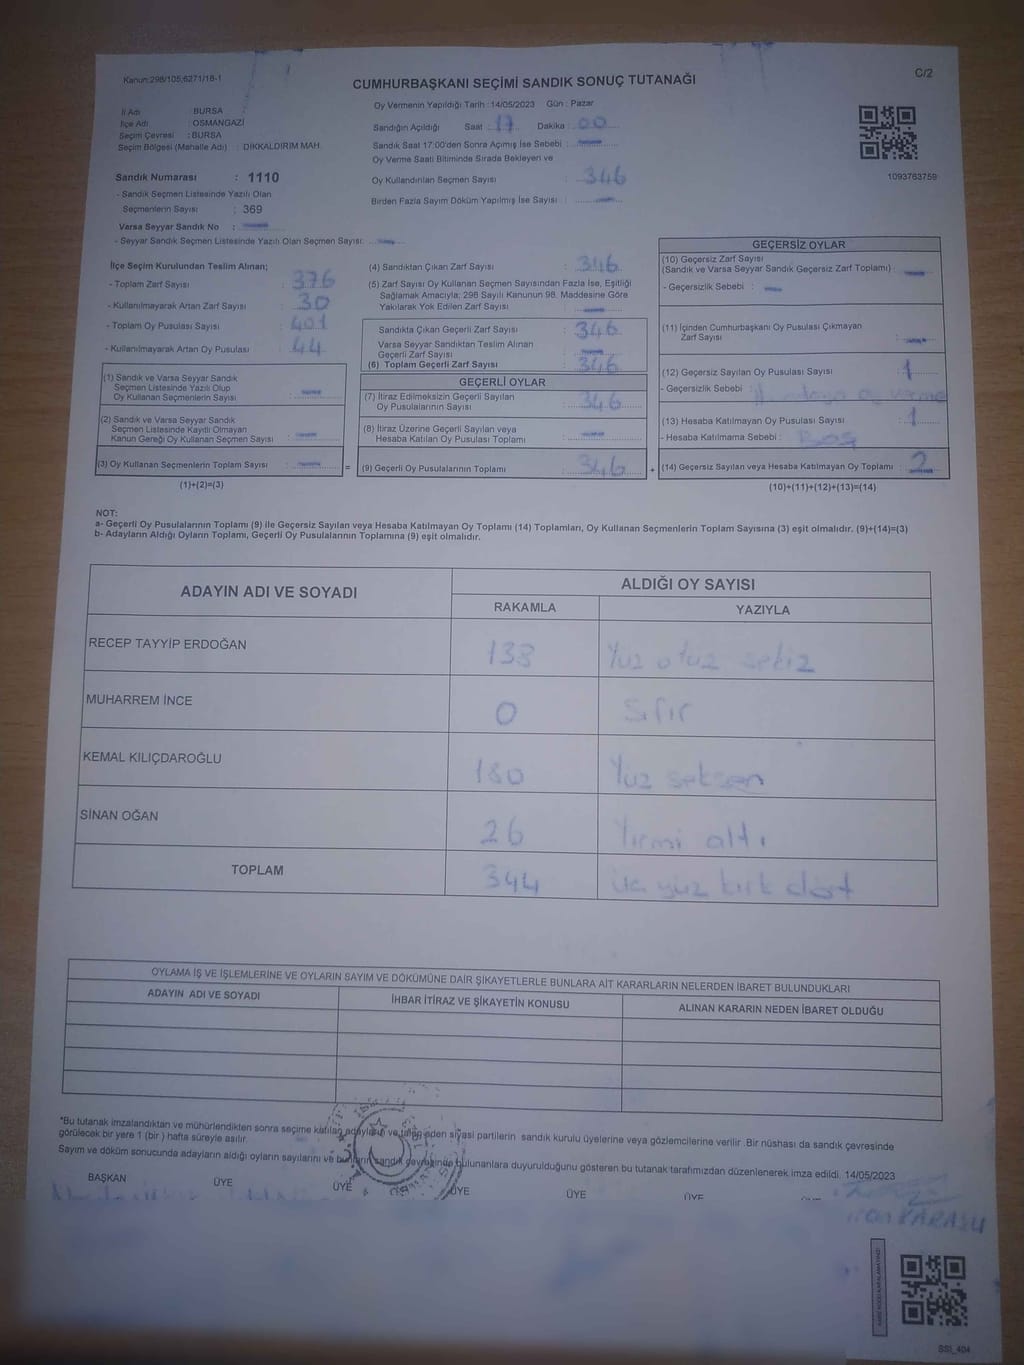 Kanun:298/105,6271/18-1
CUMHURBAŞKANI SEÇİMİ SANDIK SONUÇ TUTANAĞI
C/2
İl Adı : BURSA
İlçe Adı : OSMANGAZİ
Seçim Çevresi : BURSA
Seçim Bölgesi (Mahalle Adı) : DİKKALDIRIM MAH.
Sandık Numarası : 1110
- Sandık Seçmen Listesinde Yazılı Olan
Seçmenlerin Sayısı : 369
Varsa Seyyar Sandık No :
- Seyyar Sandık Seçmen Listesinde Yazılı Olan Seçmen Sayısı:
Oy Vermenin Yapıldığı Tarih : 14/05/2023 Gün : Pazar
Sandığın Açıldığı Saat : 17 Dakika : 00
Sandık Saat 17:00'den Sonra Açmış İse Sebebi :
Oy Verme Saati Bitiminde Sırada Bekleyen ve
Oy Kullandırılan Seçmen Sayısı : 346
Birden Fazla Sayım Döküm Yapılmış İse Sayısı :
1093763759
İlçe Seçim Kurulundan Teslim Alınan;
- Toplam Zarf Sayısı : 376
- Kullanılmayarak Artan Zarf Sayısı : 30
- Toplam Oy Pusulası Sayısı : 401
- Kullanılmayarak Artan Oy Pusulası : 44
(1) Sandık ve Varsa Seyyar Sandık
Seçmen Listesinde Yazılı Olup
Oy Kullanan Seçmenlerin Sayısı :
(2) Sandık ve Varsa Seyyar Sandık
Seçmen Listesinde Kayıtlı Olmayan
Kanun Gereği Oy Kullanan Seçmen Sayısı :
(3) Oy Kullanan Seçmenlerin Toplam Sayısı :
(1)+(2)=(3)
=
(4) Sandıktan Çıkan Zarf Sayısı : 346
(5) Zarf Sayısı Oy Kullanan Seçmen Sayısından Fazla İse, Eşitliği
Sağlamak Amacıyla; 298 Sayılı Kanunun 98. Maddesine Göre
Yakılarak Yok Edilen Zarf Sayısı :
Sandıkta Çıkan Geçerli Zarf Sayısı : 346
Varsa Seyyar Sandıktan Teslim Alınan
Geçerli Zarf Sayısı :
(6) Toplam Geçerli Zarf Sayısı : 346
GEÇERLİ OYLAR
(7) İtiraz Edilmeksizin Geçerli Sayılan
Oy Pusulalarının Sayısı : 346
(8) İtiraz Üzerine Geçerli Sayılan veya
Hesaba Katılan Oy Pusulası Toplamı :
(9) Geçerli Oy Pusulalarının Toplamı : 346
+
GEÇERSİZ OYLAR
(10) Geçersiz Zarf Sayısı
(Sandık ve Varsa Seyyar Sandık Geçersiz Zarf Toplamı) :
- Geçersizlik Sebebi :
(11) İçinden Cumhurbaşkanı Oy Pusulası Çıkmayan
Zarf Sayısı :
(12) Geçersiz Sayılan Oy Pusulası Sayısı : 1
- Geçersizlik Sebebi :
(13) Hesaba Katılmayan Oy Pusulası Sayısı : 1
- Hesaba Katılmama Sebebi : Boş
(14) Geçersiz Sayılan veya Hesaba Katılmayan Oy Toplamı : 2
(10)+(11)+(12)+(13)=(14)
NOT:
a- Geçerli Oy Pusulalarının Toplamı (9) ile Geçersiz Sayılan veya Hesaba Katılmayan Oy Toplamı (14) Toplamları, Oy Kullanan Seçmenlerin Toplam Sayısına (3) eşit olmalıdır. (9)+(14)=(3)
b- Adayların Aldığı Oyların Toplamı, Geçerli Oy Pusulalarının Toplamına (9) eşit olmalıdır.
ADAYIN ADI VE SOYADI ALDIĞI OY SAYISI
RAKAMLA YAZIYLA
RECEP TAYYİP ERDOĞAN 138 Yüz otuz sekiz
MUHARREM İNCE 0 Sıfır
KEMAL KILIÇDAROĞLU 180 Yüz seksen
SİNAN OĞAN 26 Yirmi altı
TOPLAM 344 üç yüz kırk dört
OYLAMA İŞ VE İŞLEMLERİNE VE OYLARIN SAYIM VE DÖKÜMÜNE DAİR ŞİKAYETLERLE BUNLARA AİT KARARLARIN NELERDEN İBARET BULUNDUKLARI
ADAYIN ADI VE SOYADI İHBAR İTİRAZ VE ŞİKAYETİN KONUSU ALINAN KARARIN NEDEN İBARET OLDUĞU
*Bu tutanak imzalandıktan ve mühürlendikten sonra seçime katılan adaylara ve talep eden siyasi partilerin sandık kurulu üyelerine veya gözlemcilerine verilir. Bir nüshası da sandık çevresinde
görülecek bir yere 1 (bir) hafta süreyle asılır.
Sayım ve döküm sonucunda adayların aldığı oyların sayılarını ve bunların sandık çevresinde bulunanlara duyurulduğunu gösteren bu tutanak tarafımızdan düzenlenerek imza edildi. 14/05/2023
BAŞKAN ÜYE ÜYE ÜYE ÜYE ÜYE
KARASU
SSI_404